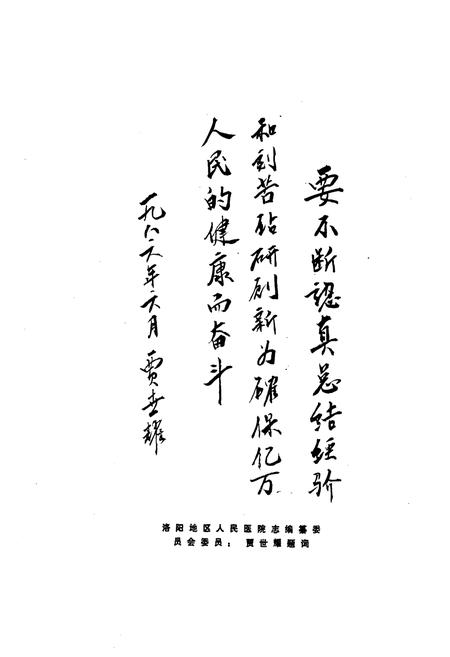 要不断認真总结经验
和刻苦钻研创新为確保亿万
人民的健康而奋斗
一九八六年六月 贾世耀
洛阳地区人民医院志编纂委
员会委员：贾世耀题词